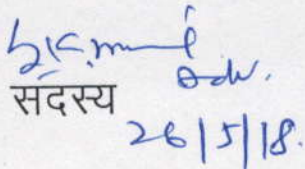 Adv.
सदस्य
26/5/18.